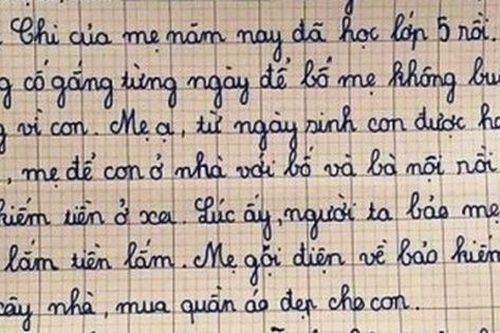 . Chi của mẹ năm nay đã học lớp 5 rồi.
g cố gắng từng ngày để bố mẹ không bu
g vì con. Mẹ ạ, từ ngày sinh con được h
, mẹ để con ở nhà với bố và bà nội rồi
kiếm tiền ở xa. Lúc ấy, người ta bảo mẹ
lắm tiền lắm. Mẹ gọi điện về bảo kiếm
cây nhà, mua quần áo đẹp cho con.